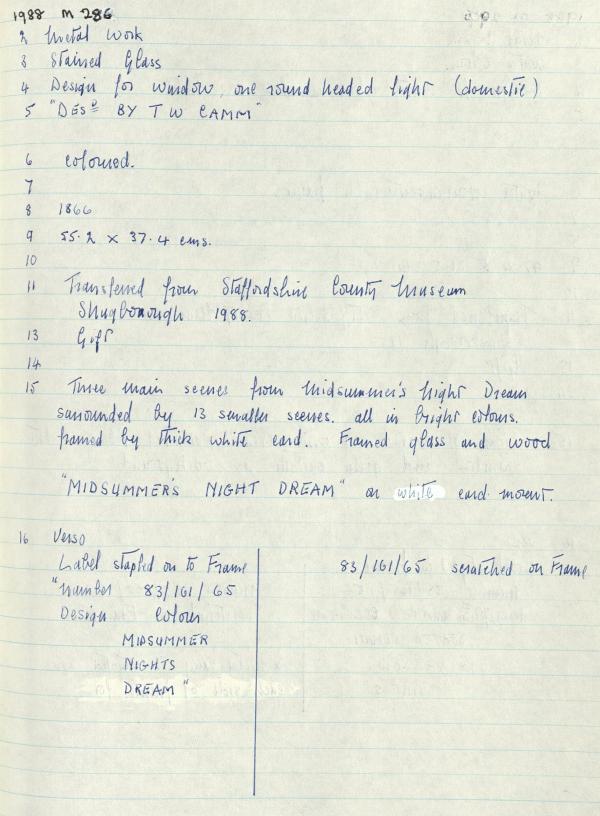 1988 M 286
2 Metal Work
3 Stained Glass
4 Design for window, one round headed light (domestic)
5 "DESD BY T W CAMM"
6 coloured.
7
8 1866
9 55.2 x 37.4 cms.
10
11 Transferred from Staffordshire County Museum
Shugborough 1988.
13 Gift
14
15 Three main scenes from Midsummer's Night Dream
surrounded by 13 smaller scenes. all in bright colours.
framed by thick white card. Framed glass and wood
"MIDSUMMER'S NIGHT DREAM" on white card mount.
16 Verso
Label stapled on to Frame
"number 83/161/65
Design Colour
MIDSUMMER
NIGHTS
DREAM"
83/161/65 scratched on Frame